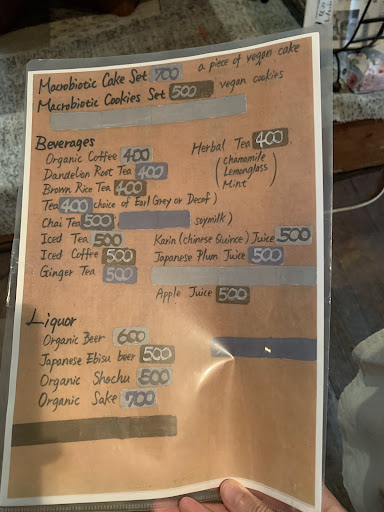 Macrobiotic Cake Set 700 a piece of vegan cake
Macrobiotic Cookies Set 500 vegan cookies
Beverages
Organic Coffee 400
Dandelion Root Tea 400
Brown Rice Tea 400
Tea 400 choice of Earl Grey or Decaf)
Chai Tea 500 soymilk)
Iced Tea 500
Iced Coffee 500
Ginger Tea 500
Herbal Tea 400
(chamomile
Lemonglass
Mint)
Karin (chinese Quince) Juice 500
Japanese Plum Juice 500
Apple Juice 500
Liquor
Organic Beer 600
Japanese Ebisu beer 500
Organic Shochu 500
Organic Sake 700